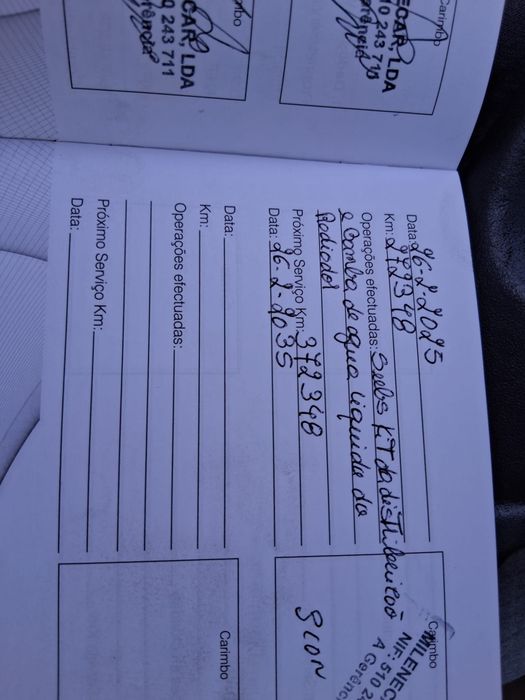 Carimbo
ECAR, LDA
10 243 711
erência
Carimbo
CAR, LDA
0 243 711
rência
Data: 26-2-2025
Km: 272348
Operações efectuadas: Subs KiT da distribuição
e bomba de agua liquido do
Radiador
Próximo Serviço Km: 372348
Data: 26-2-2035
Carimbo
MILENEC
NIF: 510 2
A Gerênc
Data:
Km:
Operações efectuadas:
Próximo Serviço Km:
Data:
Carimbo